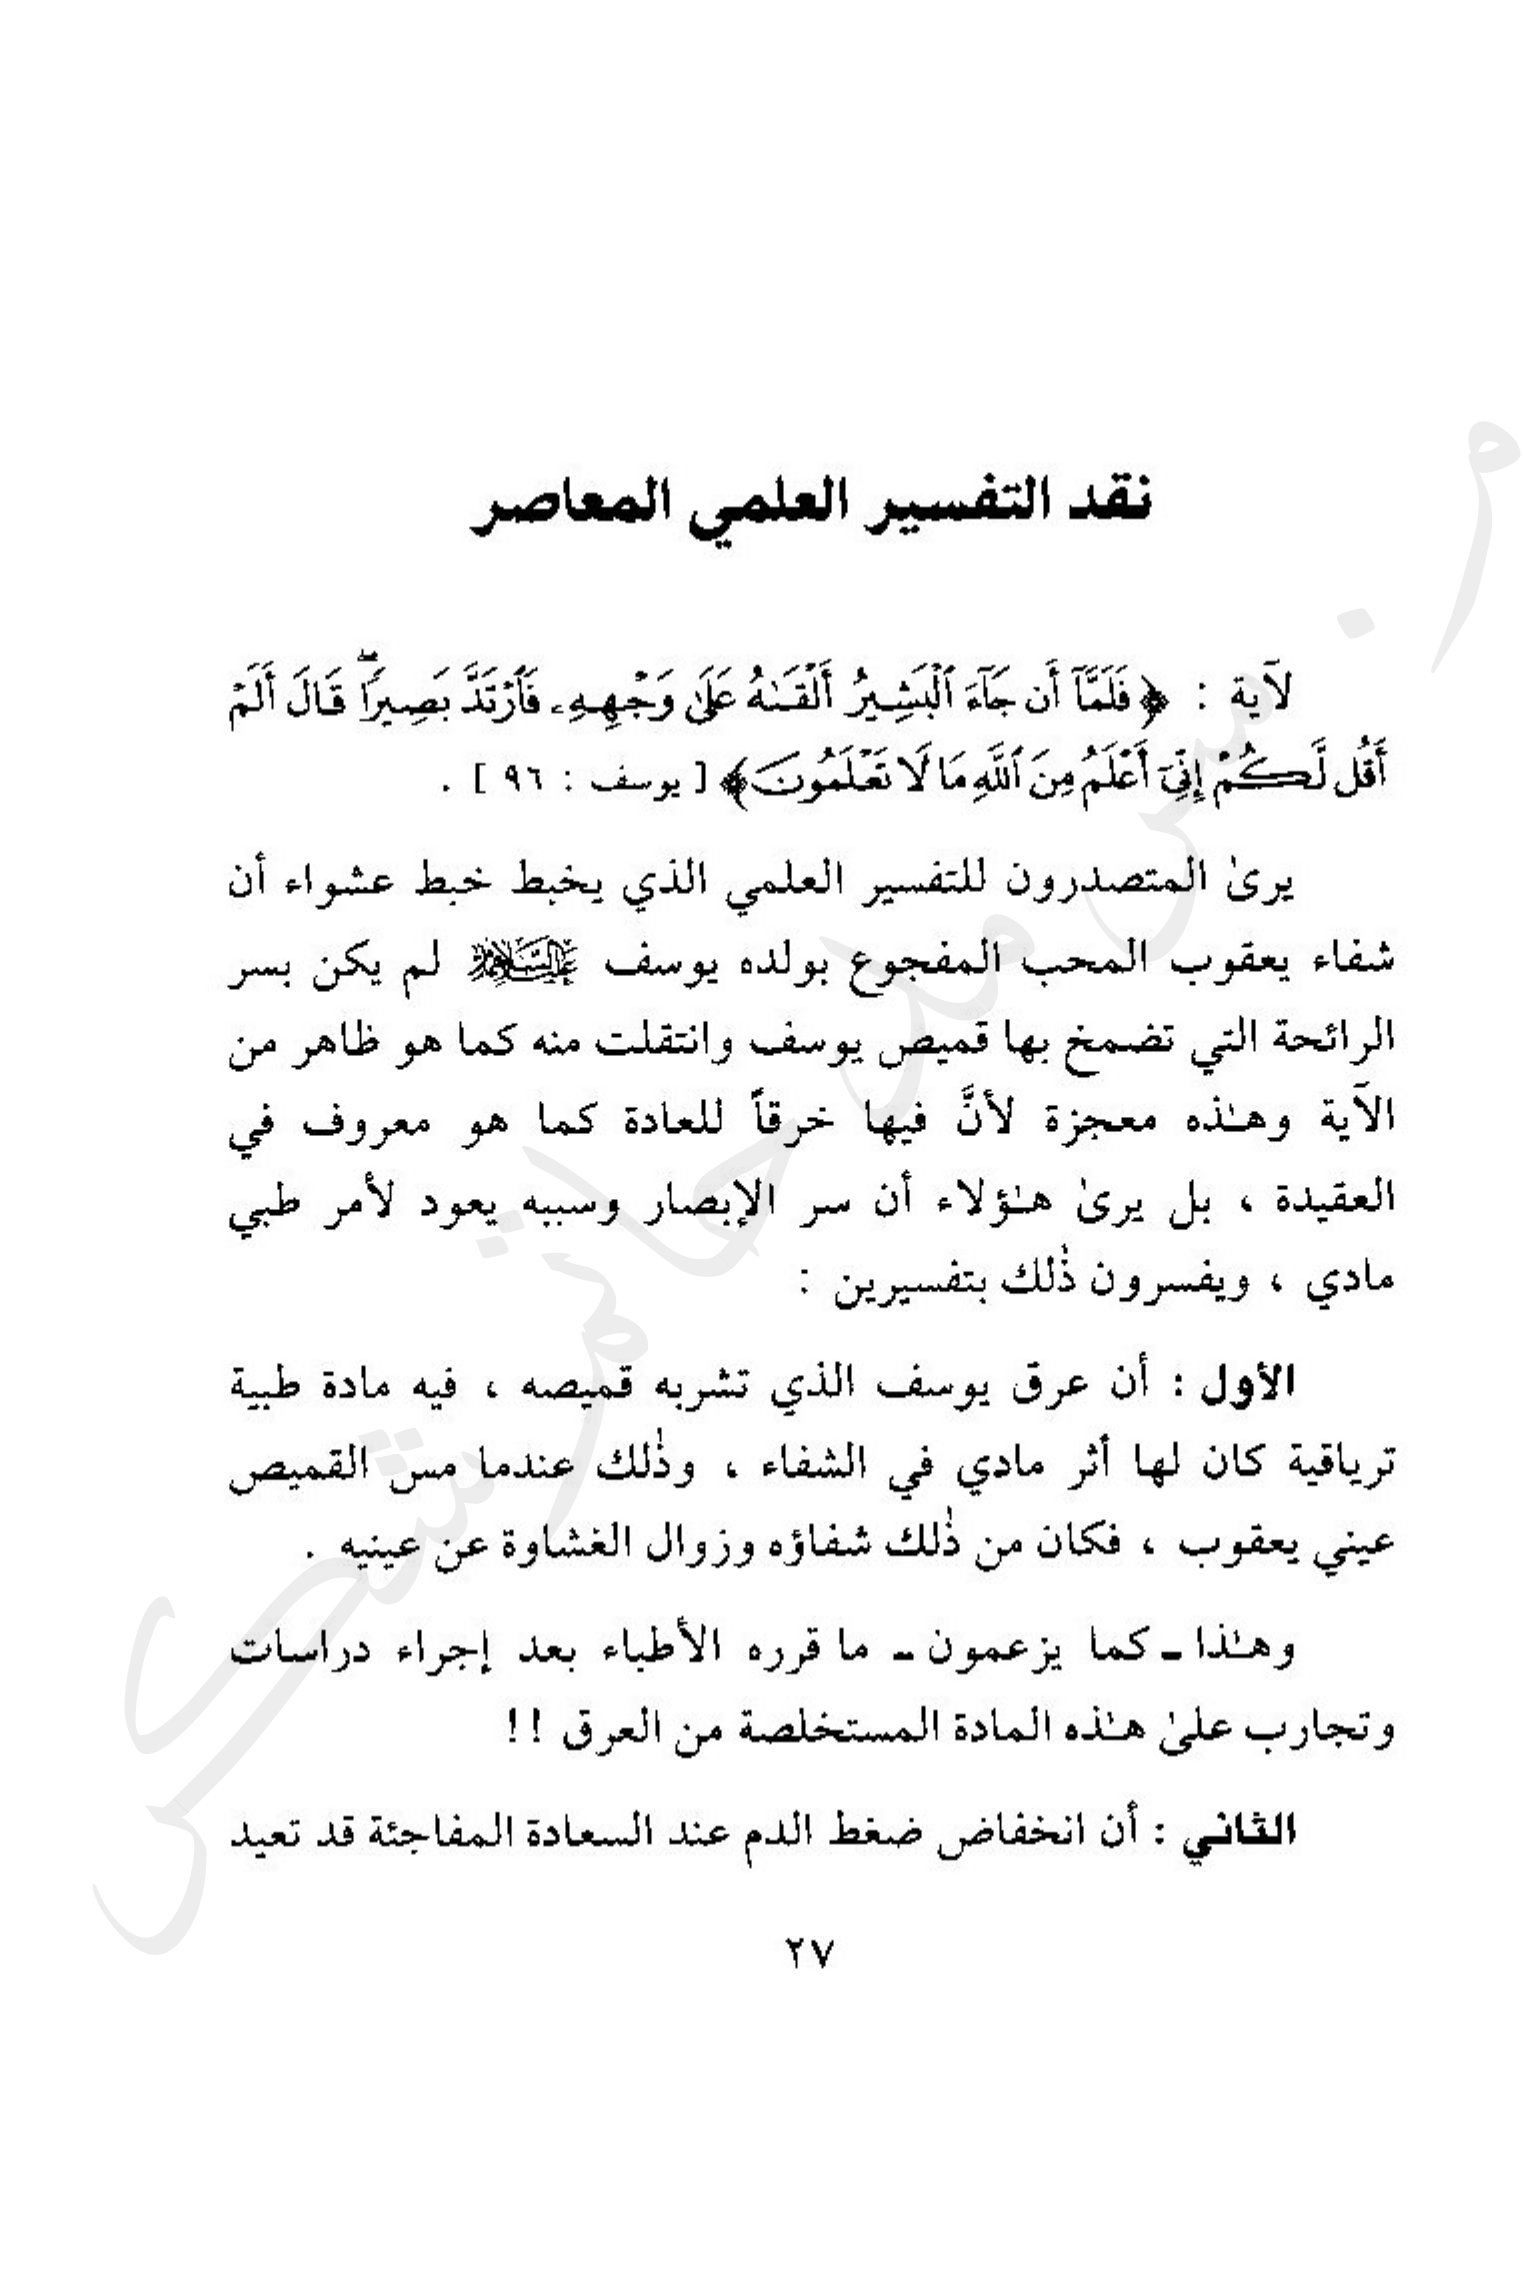 نقد التفسير العلمي المعاصر
لآية : ﴿فَلَمَّآ أَن جَآءَ ٱلۡبَشِيرُ أَلۡقَىٰهُ عَلَىٰ وَجۡهِهِۦ فَٱرۡتَدَّ بَصِيرٗاۖ قَالَ أَلَمۡ
أَقُل لَّكُمۡ إِنِّيٓ أَعۡلَمُ مِنَ ٱللَّهِ مَا لَا تَعۡلَمُونَ﴾ [ يوسف : ٩٦ ] .
يرىٰ المتصدرون للتفسير العلمي الذي يخبط خبط عشواء أن
شفاء يعقوب المحب المفجوع بولده يوسف عليه السلام لم يكن بسر
الرائحة التي تضمخ بها قميص يوسف وانتقلت منه كما هو ظاهر من
الآية وهـٰذه معجزة لأنَّ فيها خرقاً للعادة كما هو معروف في
العقيدة ، بل يرىٰ هـٰؤلاء أن سر الإبصار وسببه يعود لأمر طبي
مادي ، ويفسرون ذٰلك بتفسيرين :
الأول : أن عرق يوسف الذي تشربه قميصه ، فيه مادة طبية
ترياقية كان لها أثر مادي في الشفاء ، وذٰلك عندما مس القميص
عيني يعقوب ، فكان من ذٰلك شفاؤه وزوال الغشاوة عن عينيه .
وهـٰذا ـ كما يزعمون ـ ما قرره الأطباء بعد إجراء دراسات
وتجارب علىٰ هـٰذه المادة المستخلصة من العرق !!
الثاني : أن انخفاض ضغط الدم عند السعادة المفاجئة قد تعيد
٢٧